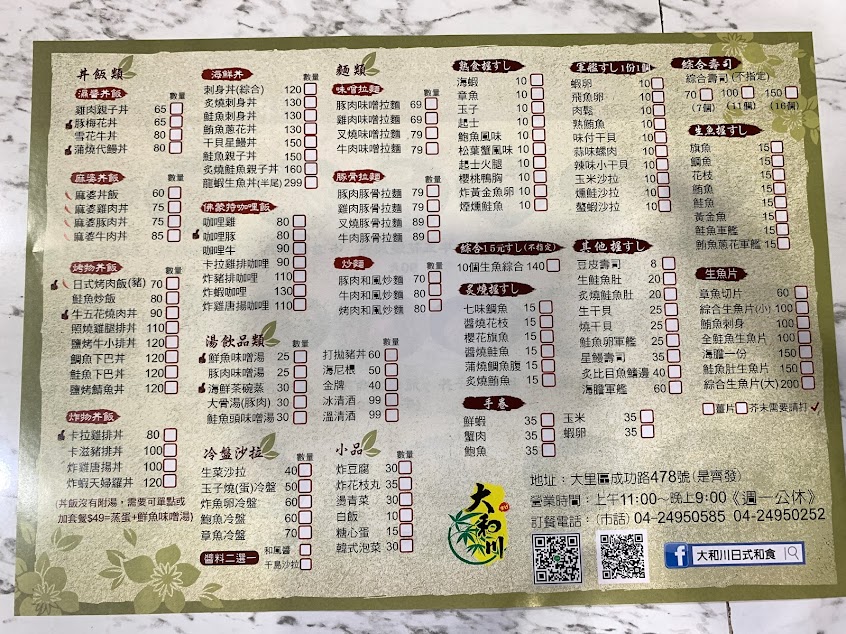 丼飯類
數量
滑醬丼飯
雞肉親子丼 65
豚梅花丼 65
雪花牛丼 80
蒲燒代鰻丼 80
麻婆丼飯
麻婆丼飯 60
麻婆雞肉丼 75
麻婆豚肉丼 75
麻婆牛肉丼 85
烤物丼飯 數量
日式烤肉飯(豬) 70
鮭魚炒飯 80
牛五花燒肉丼 90
照燒雞腿排丼 110
鹽烤牛小排丼 120
鯛魚下巴丼 120
鮭魚下巴丼 120
鹽烤鯖魚丼 120
炸物丼飯
卡拉雞排丼 80
卡滋豬排丼 100
炸雞唐揚丼 100
炸蝦天婦羅丼 120
(丼飯沒有附湯，需要可單點或
加套餐$49=蒸蛋+鮮魚味噌湯)
海鮮丼 數量
刺身丼(綜合) 120
炙燒刺身丼 130
鮭魚刺身丼 130
鮪魚蔥花丼 130
干貝星鰻丼 150
鮭魚親子丼 150
炙燒鮭魚親子丼 160
龍蝦生魚丼(半尾) 299
佛蒙特咖哩飯 數量
咖哩雞 80
咖哩豚 80
咖哩牛 90
卡拉雞排咖哩 90
炸豬排咖哩 110
炸蝦咖哩 130
炸雞唐揚咖哩 110
湯飲品類 數量
鮮魚味噌湯 25
豚肉味噌湯 25
海鮮茶碗蒸 30
大骨湯(豚肉) 30
鮭魚頭味噌湯 30
打拋豬丼 60
海尼根 50
金牌 40
冰清酒 99
溫清酒 99
冷盤沙拉 數量
生菜沙拉 40
玉子燒(蛋)冷盤 50
炸魚卵冷盤 60
鮑魚冷盤 60
章魚冷盤 70
醬料二選一 和風醬
千島沙拉
小品 數量
炸豆腐 30
炸花枝丸 35
燙青菜 30
白飯 10
糖心蛋 15
韓式泡菜 30
麵類
數量
味噌拉麵
豚肉味噌拉麵 69
雞肉味噌拉麵 69
叉燒味噌拉麵 79
牛肉味噌拉麵 79
豚骨拉麵
豚肉豚骨拉麵 79
雞肉豚骨拉麵 79
叉燒豚骨拉麵 89
牛肉豚骨拉麵 89
炒麵 數量
豚肉和風炒麵 70
牛肉和風炒麵 80
烤肉和風炒麵 80
熟食握すし 數量
海蝦 10
章魚 10
玉子 10
起士 10
鮑魚風味 10
松葉蟹風味 10
起士火腿 10
櫻桃鴨胸 10
炸黃金魚卵 10
煙燻鮭魚 10
綜合15元すし(不指定)
10個生魚綜合 140
炙燒握すし
七味鯛魚 15
醬燒花枝 15
櫻花旗魚 15
醬燒鮭魚 15
蒲燒鯛魚腹 15
炙燒鮪魚 15
手卷
鮮蝦 35
蟹肉 35
鮑魚 35
玉米 35
蝦卵 35
軍艦すし1份1個 數量
蝦卵 10
飛魚卵 10
肉鬆 10
熟鮪魚 10
味付干貝 10
蒜味螺肉 10
辣味小干貝 10
玉米沙拉 10
燻鮭沙拉 10
蟹蝦沙拉 10
其他握すし 數量
豆皮壽司 8
生鮭魚肚 20
炙燒鮭魚肚 20
生干貝 30
燒干貝 30
鮭魚卵軍艦 30
星鰻壽司 35
炙比目魚鰭邊 40
海膽軍艦 60
綜合壽司 數量
綜合壽司(不指定)
70 100 150
(7個) (11個) (16個)
生魚握すし
旗魚 15
鯛魚 15
花枝 15
鮪魚 15
鮭魚 15
黃金魚 15
鮭魚軍艦 15
鮪魚蔥花軍艦 15
生魚片
章魚切片 60
綜合生魚片(小) 100
鮪魚刺身 100
全鮭魚生魚片 100
海膽一份 150
鮭魚肚生魚片 150
綜合生魚片(大) 200
薑片 芥末需要請打✓
大和川
地址：大里區成功路478號(是齊發)
營業時間：上午11:00～晚上9:00《週一公休》
訂餐電話：(市話) 04-24950585 04-24950252
f 大和川日式和食